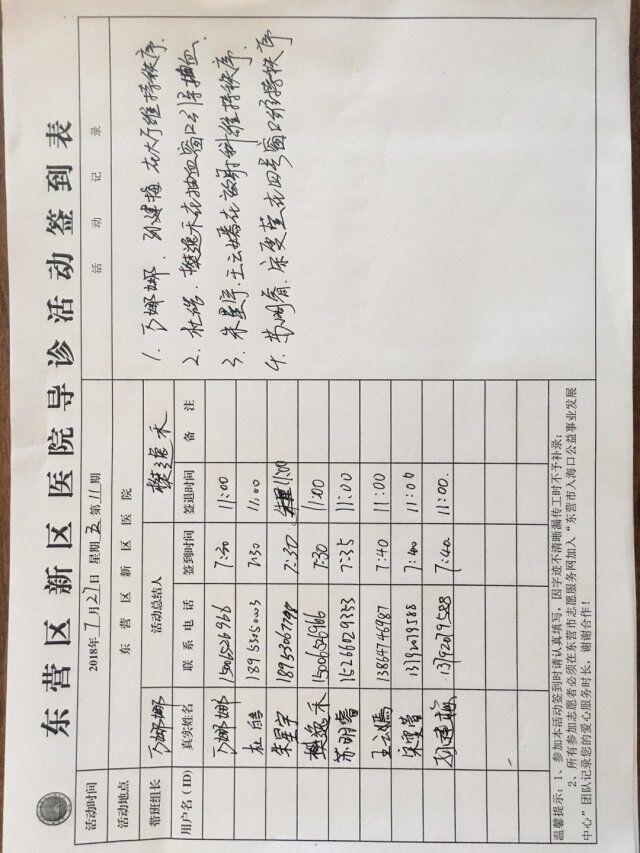 东营区新区医院导诊活动签到表
活动时间 2018年7月27日 星期五 第11期 活动记录
活动地点 东营区新区医院
带班组长 丁娜娜 活动总结人 樊逸禾
用户名(ID) 真实姓名 联系电话 签到时间 签退时间 备注
丁娜娜 15006526966 7:30 11:00
杜皓 18953050003 7:30 11:00
朱星宇 18953067798 7:30 11:00
樊逸禾 15006526966 7:30 11:00
苏明睿 15266029353 7:35 11:00
王云嫣 13864746987 7:40 11:00
宋雯萱 13192019588 7:40 11:00
孙建梅 13792019588 7:40 11:00
1. 丁娜娜、孙建梅 在大厅维持秩序.
2. 杜皓、樊逸禾在抽血窗口引导抽血
3. 朱星宇、王云嫣在放射科维持秩序.
4. 苏明睿、宋雯萱在四号窗口维持秩序
温馨提示:1、参加本活动签到时请认真填写,因字迹不清晰漏传工时不予补录;
2、所有参加志愿者必须在东营市志愿服务网加入“东营市入海口公益事业发展
中心”团队记录您的爱心服务时长,谢谢合作!